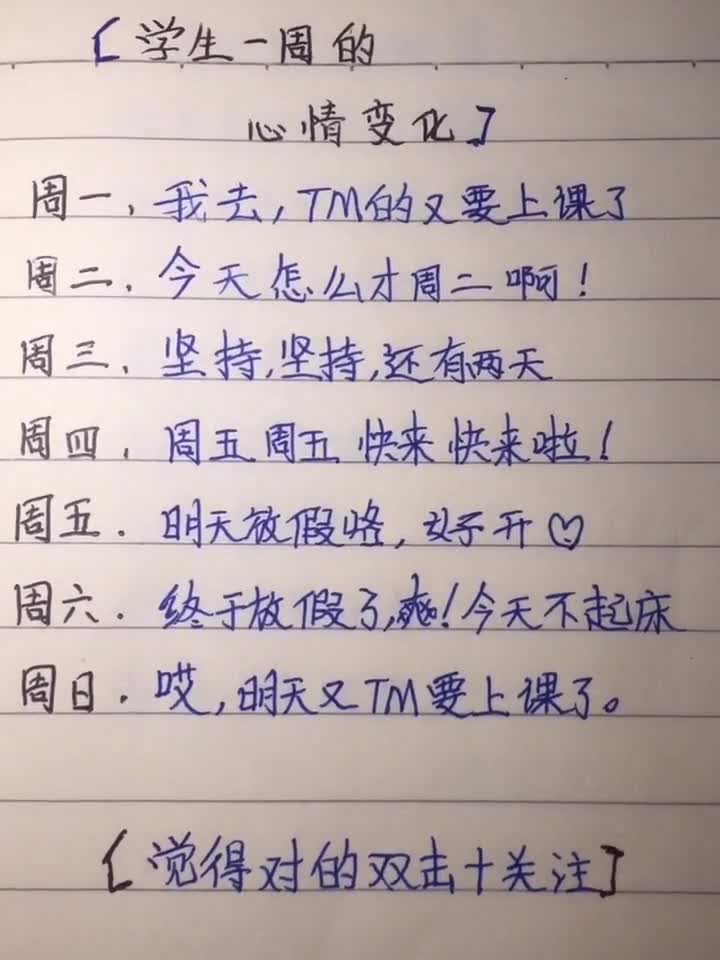 [学生一周的
心情变化]
周一，我去，TM的又要上课了
周二，今天怎么才周二啊！
周三，坚持，坚持，还有两天
周四，周五周五 快来 快来啦！
周五．明天放假咯，好开♡
周六．终于放假了，爽！今天不起床
周日．哎，明天又TM要上课了。
[觉得对的双击+关注]